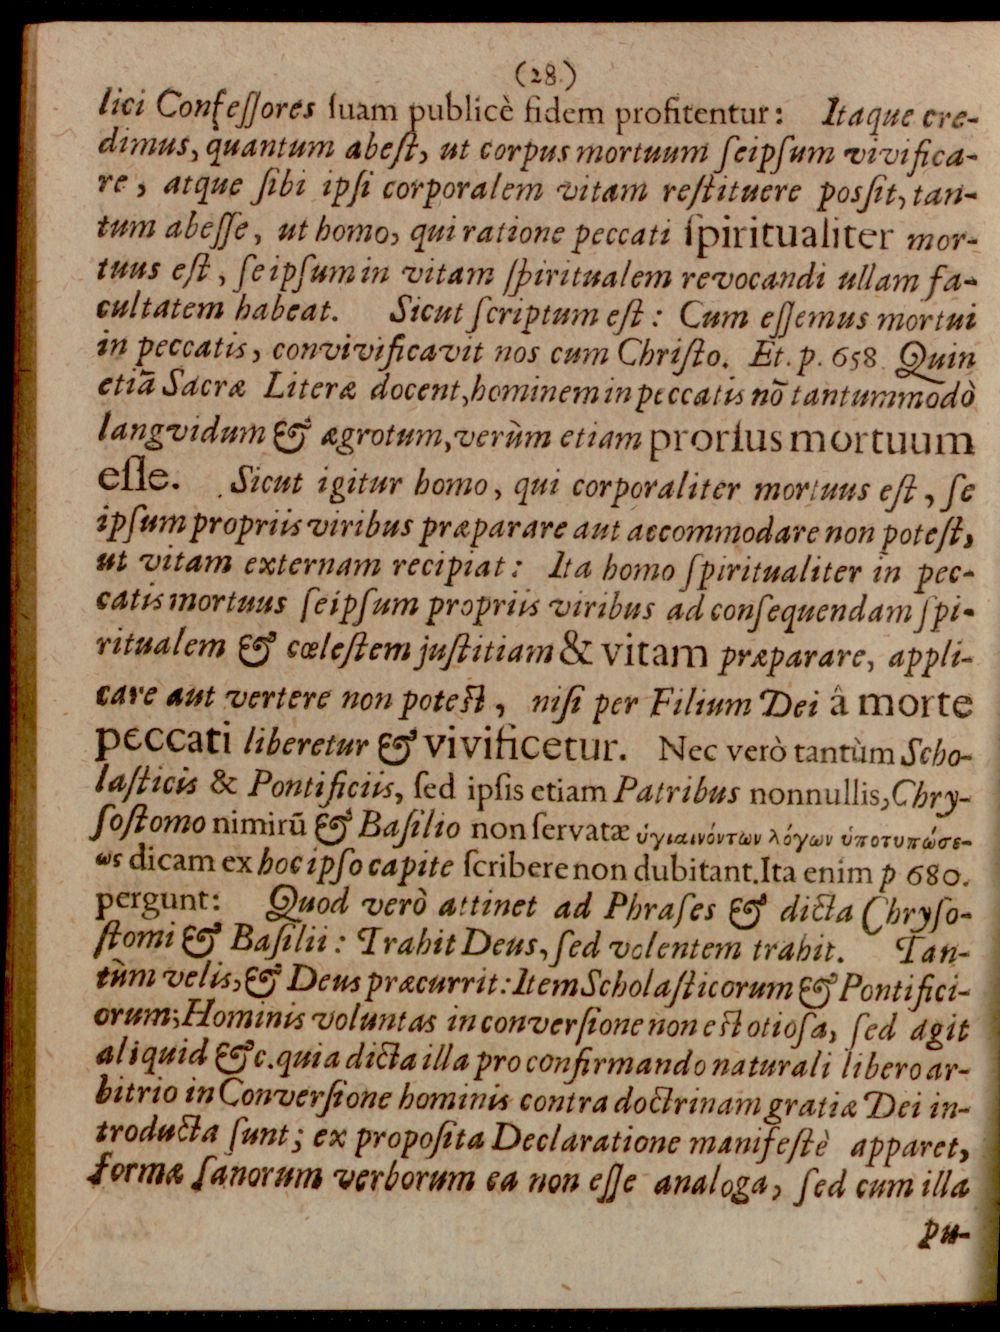 (28.)
lici Confeſſores ſuam publicè fidem profitentur: Itaque cre-
dimus, quantum abeſt, ut corpus mortuum ſeipſum vivifica-
re, atque ſibi ipſi corporalem vitam reſtituere poſſit, tan-
tum abeſſe, ut homo, qui ratione peccati ſpiritualiter mor-
tuus eſt, ſeipſum in vitam ſpiritualem revocandi ullam fa-
cultatem habeat. Sicut ſcriptum eſt: Cum eſſemus mortui
in peccatis, convivificavit nos cum Chriſto. Et. p. 658. Quin
etiã Sacræ Literæ docent, hominem in peccatis nõ tantummodò
langvidum & ægrotum, verùm etiam prorſus mortuum
eſſe. Sicut igitur homo, qui corporaliter mortuus eſt, ſe
ipſum propriis viribus præparare aut accommodare non poteſt,
ut vitam externam recipiat: Ita homo ſpiritualiter in pec-
catis mortuus ſeipſum propriis viribus ad conſequendam ſpi-
ritualem & cœleſtem juſtitiam & vitam præparare, appli-
care aut vertere non poteſt, niſi per Filium Dei â morte
peccati liberetur & vivificetur. Nec verò tantùm Scho-
laſticis & Pontificiis, ſed ipſis etiam Patribus nonnullis, Chry-
ſoſtomo nimirũ & Baſilio non ſervatæ ὑγιαινόντων λόγων ὑποτυπώσε-
ως dicam ex hoc ipſo capite ſcribere non dubitant. Ita enim p 680.
pergunt: Quod verò attinet ad Phraſes & dicta Chryſo-
ſtomi & Baſilii: Trahit Deus, ſed volentem trahit. Tan-
tùm velis, & Deus præcurrit: Item Scholaſticorum & Pontifici-
orum; Hominis voluntas in converſione non eſt otioſa, ſed agit
aliquid &c. quia dicta illa pro confirmando naturali libero ar-
bitrio in Converſione hominis contra doctrinam gratiæ Dei in-
troducta ſunt; ex propoſita Declaratione manifeſtè apparet,
formæ ſanorum verborum ea non eſſe analoga, ſed cum illa
pu-